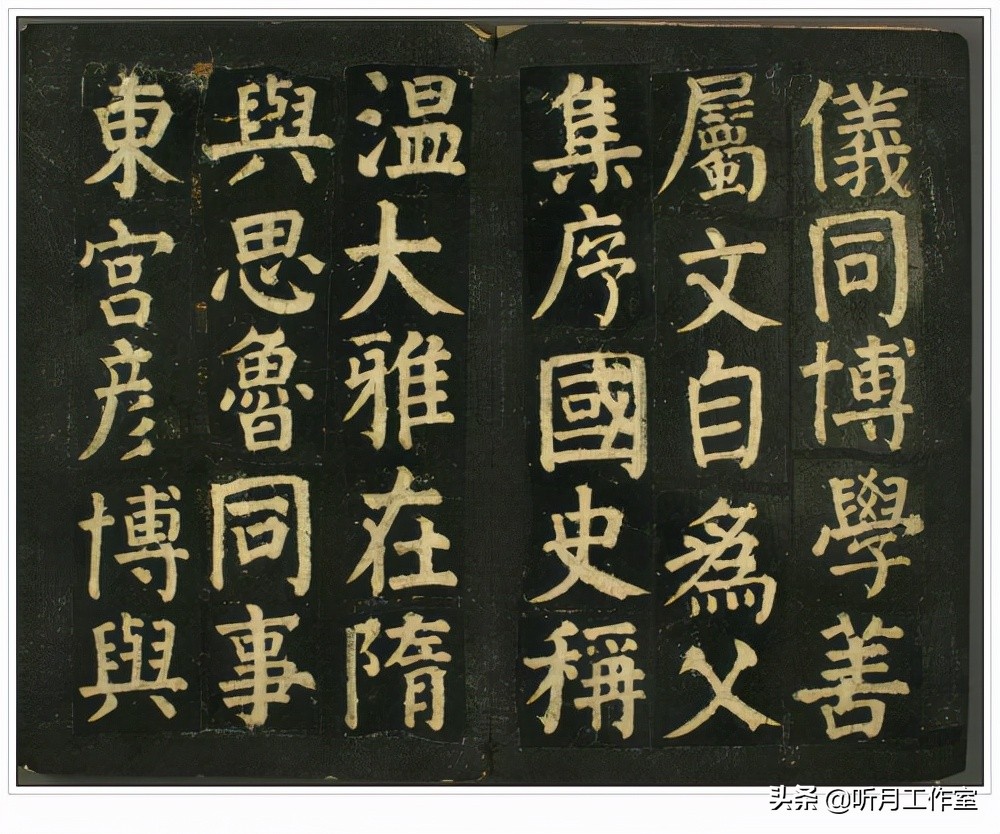 儀同博學善
屬文自為父
集序國史稱
温大雅在隋
與思魯同事
東宮彦博與
头条 @听月工作室